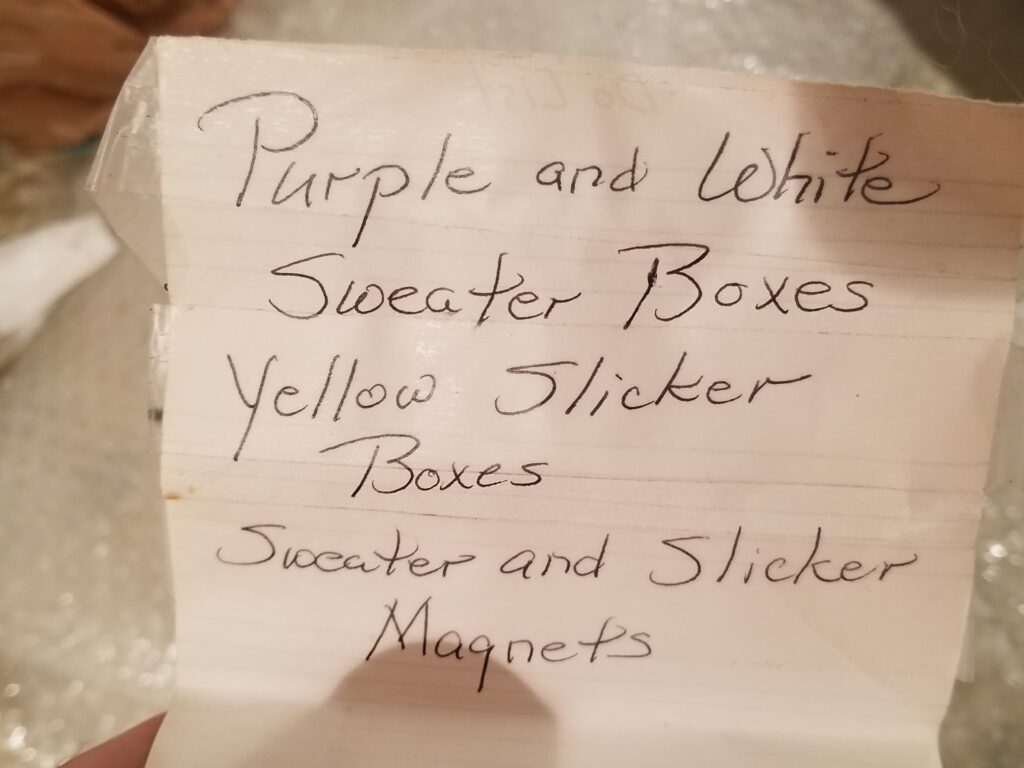 Purple and White
Sweater Boxes
Yellow Slicker
Boxes
Sweater and Slicker
Magnets